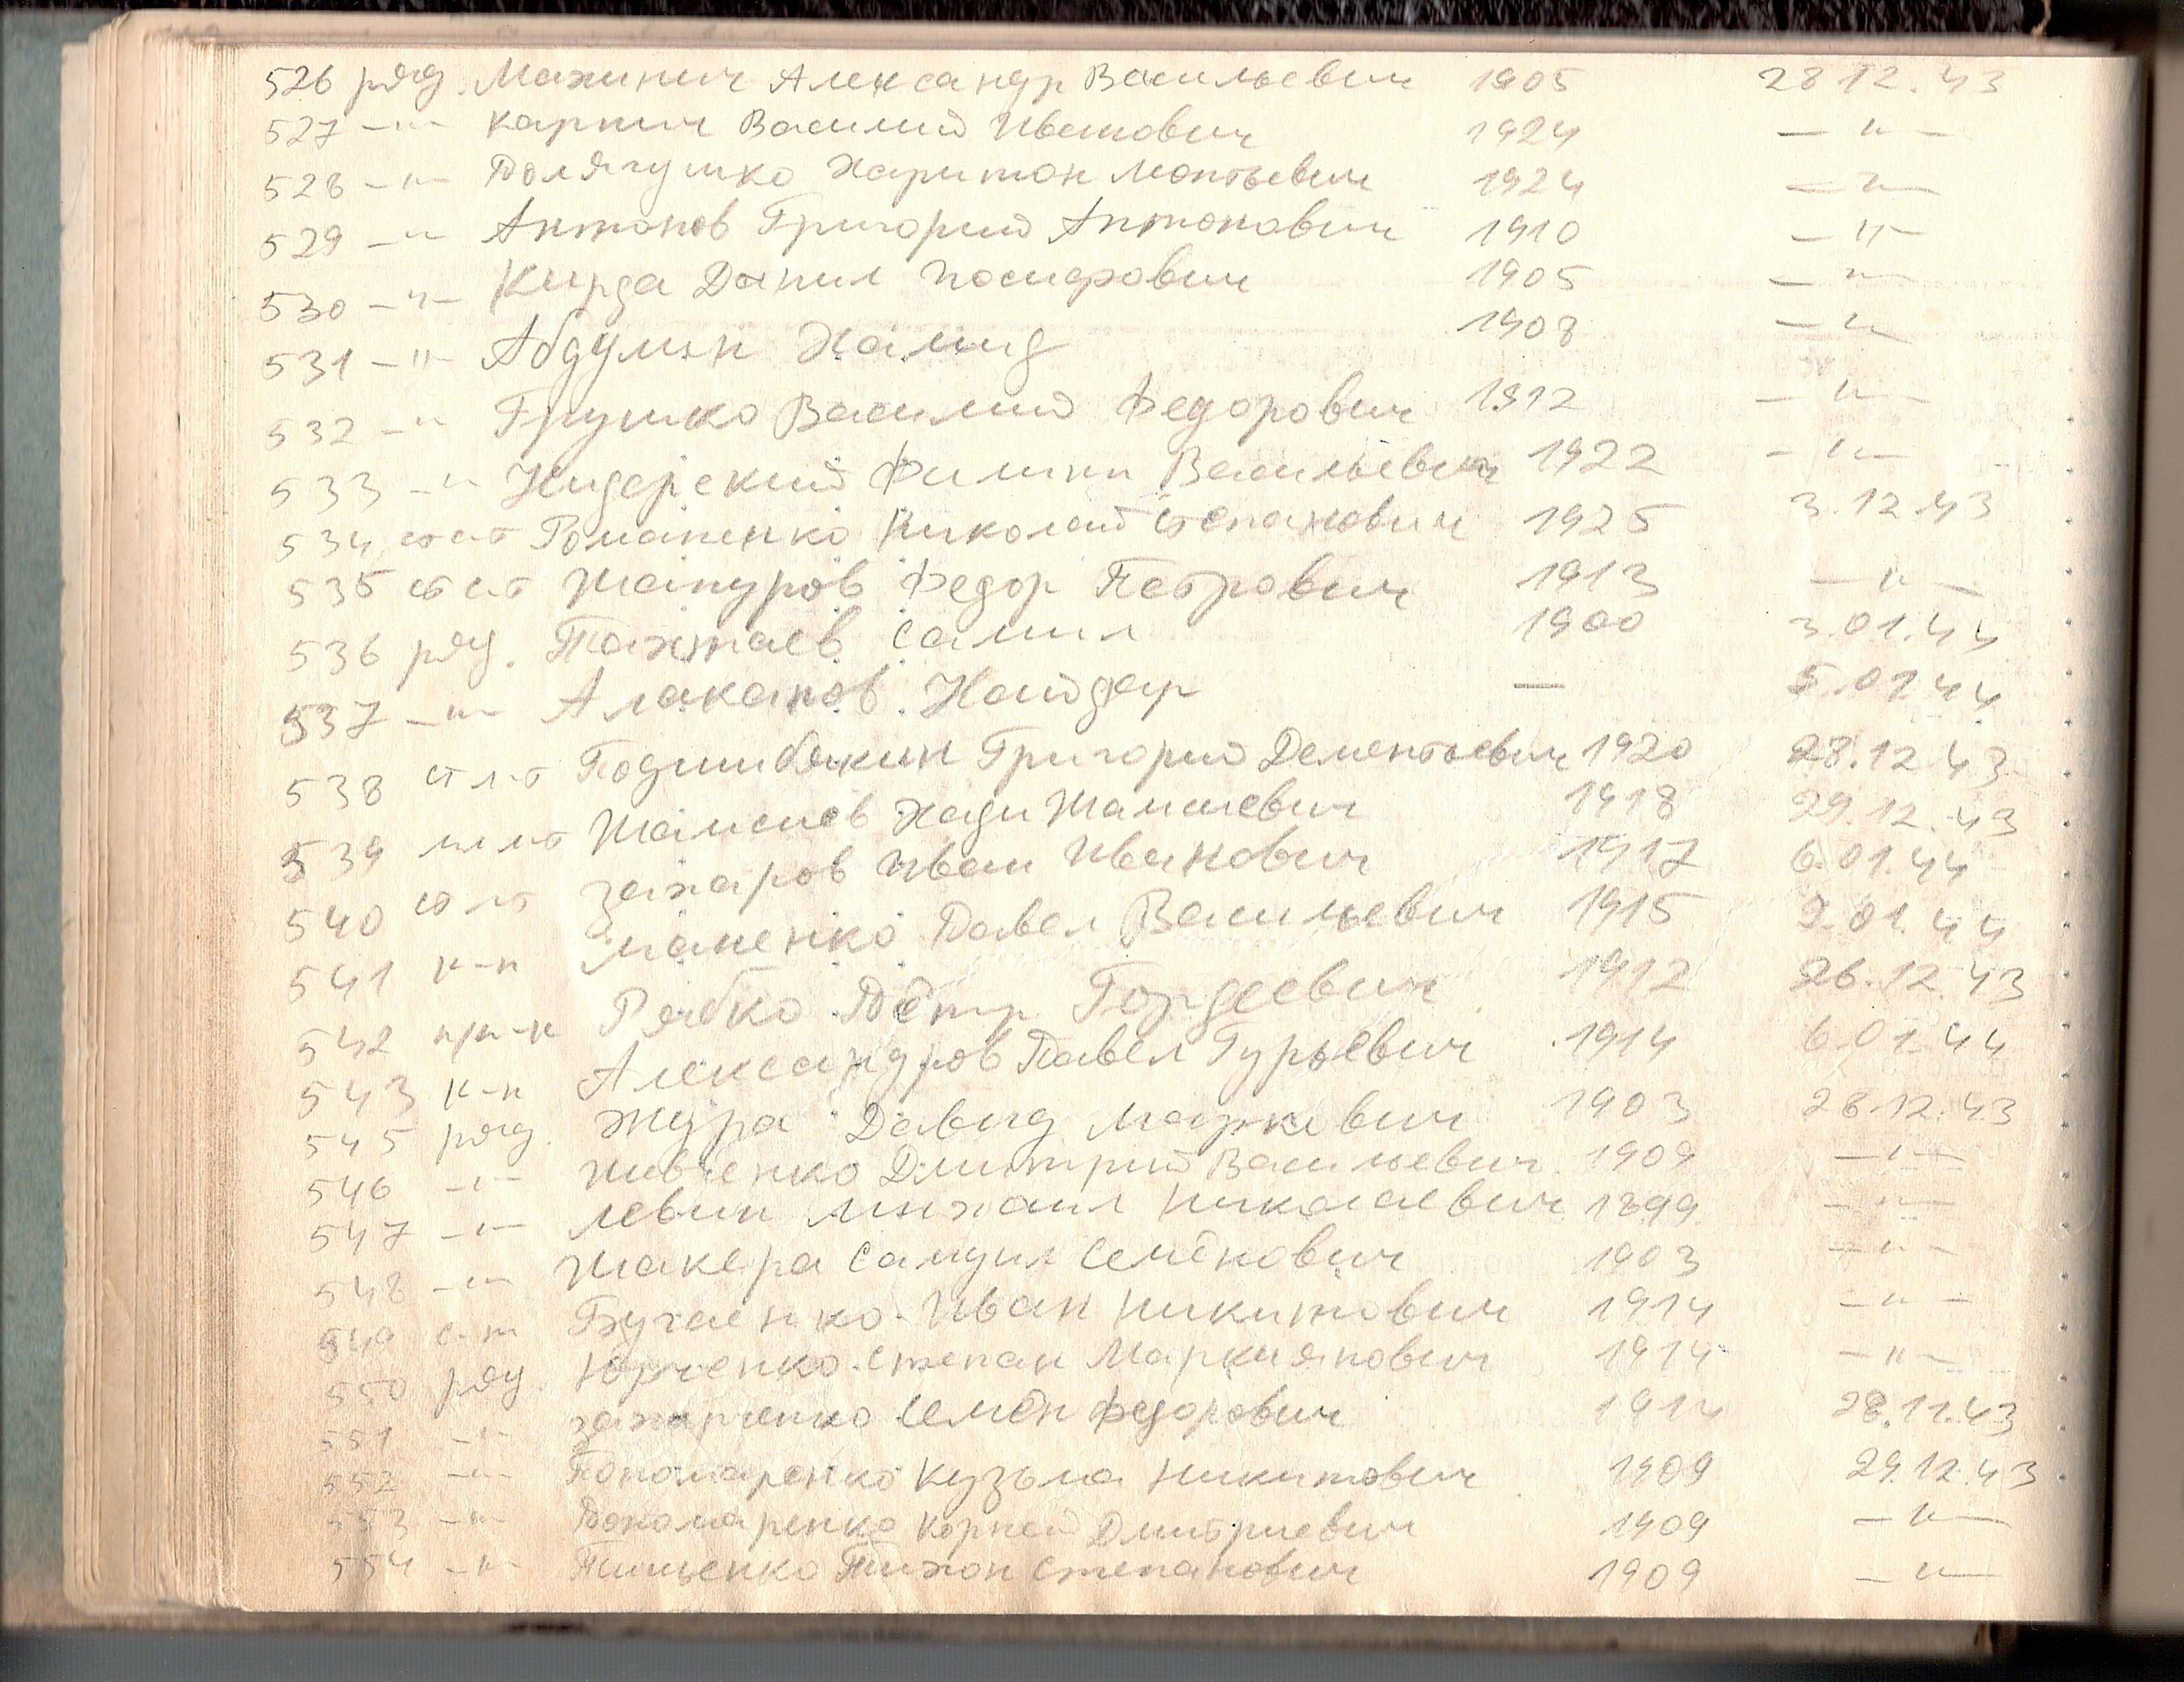 526 ряд. Махинич Александр Васильевич 1905 28 12. 43
527 —"— Карпич Василий Иванович 1924 — " —
528 —"— Харитон Леонтьевич 1924 — " —
529 —" Антонов Григорий Антонович 1910 — " —
530 —"— Кирда Данил Иосифович 1905 — " —
531 —"— Абдулин Хамид 1908 — " —
532 —" Грушко Василий Федорович 1912 — " —
533 —" Филипп Васильевич 1922 — " —
534 Романенко Николай Степанович 1925 3.12.43
535 Шапуров Федор Петрович 1913 — " —
536 ряд. Тахтаев Самил 1900 3.01.44
537 —"— Алаканов Найдар — 5.01.44
538 ст л-т Подшибякин Григорий Дементьевич 1920 28.12.43
539 Шамсиев Хади 1918 29.12.43
540 Захаров Иван Иванович 1917 6.01.44
541 к-н Павел Васильевич 1915 2.01.44
542 п/п-к Рябко Пётр Гордеевич 1912 26.12.43
543 к-н Александров Павел Гурьевич 1914 6.01.44
545 ряд. Жура Давид Маркович 1903 28.12.43
546 —"— Ивченко Дмитрий Васильевич 1909 — " —
547 —"— Левин Михаил Николаевич 1899 — " —
548 —"— Шакера Самуил Семёнович 1903 — " —
549 с-т Бугаенко Иван Никитович 1914 — " —
550 ряд. Юрченко Степан Маркиянович 1914 — " —
551 —"— Захарченко Семён Федорович 1914 28.11.43
552 —"— Пономаренко Кузьма Никитович 1909 29.12.43
553 —"— Пономаренко Корней Дмитриевич 1909 — " —
554 —"— Тищенко Тихон Степанович 1909 — " —